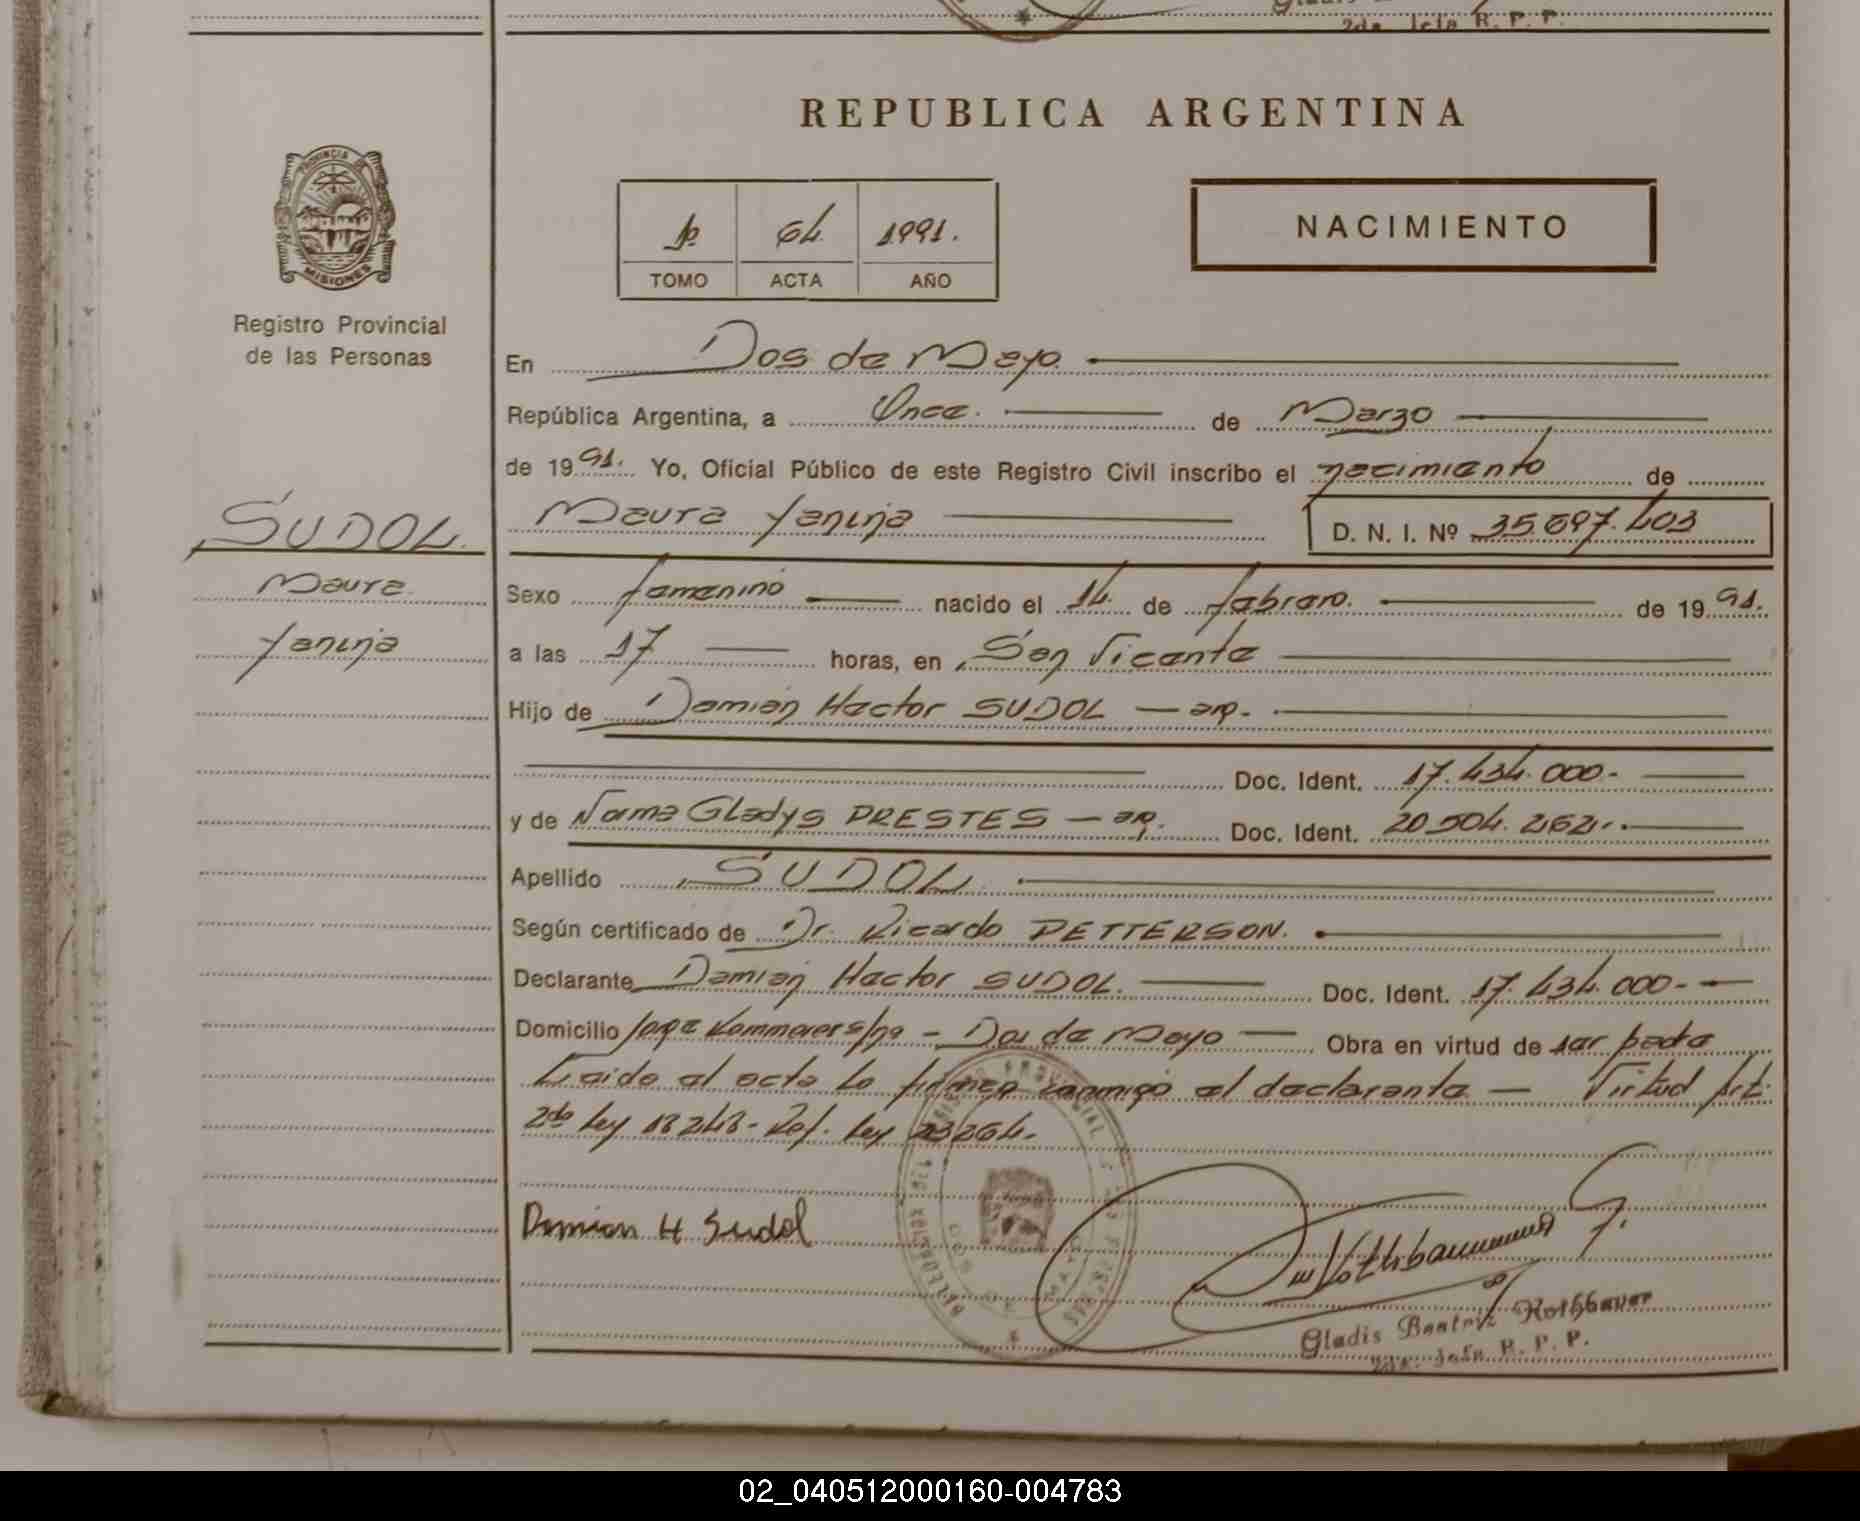 2da. Jefa R. P. P.
REPUBLICA ARGENTINA
PROVINCIA DE
MISIONES
1º 64. 1991.
TOMO ACTA AÑO
NACIMIENTO
Registro Provincial
de las Personas
En Dos de Mayo.
República Argentina, a Once. de Marzo
de 1991. Yo, Oficial Público de este Registro Civil inscribo el nacimiento de
SUDOL.
Maura Yanina D. N. I. Nº 35.697.403
Maura
Sexo femenino nacido el 14. de febrero. de 1991.
Yanina
a las 17 horas, en San Vicente
Hijo de Damian Hector SUDOL — arg.
Doc. Ident. 17.434.000.-
y de Norma Gladys PRESTES — arg. Doc. Ident. 20.504.262.
Apellido SUDOL.
Según certificado de Dr. Ricardo PETTERSON.
Declarante Damian Hector SUDOL. Doc. Ident. 17.434.000.-
Domicilio Jorge s/nº - Dos de Mayo Obra en virtud de ser padre
Leido el acta la firman conmigo el declarante — Virtud Art.
2do Ley 18248 - Ref. Ley 23264.
Damian H Sudol
DOS DE MAYO
Gladis Beatriz Rothbauer
2da. Jefa R. P. P.
02_040512000160-004783